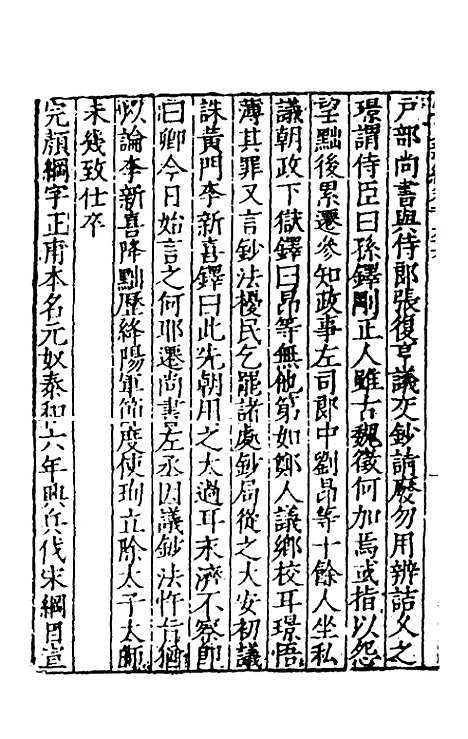 戶部尚書與侍郎張復亨議交鈔請廢勿用辨詰久之
璟謂侍臣曰孫鐸剛正人雖古魏徵何加焉或指以怨
望黜後累遷參知政事左司郎中劉昂等十餘人坐私
議朝政下獄鐸曰昂等無他第如鄭人議鄉校耳璟悟
薄其罪又言鈔法擾民乞罷諸處鈔局從之大安初議
誅黃門李新喜鐸曰此先朝用之太過耳末濟不察即
曰卿今日始言之何耶遷尚書左丞因議鈔法忤旨猶
以論李新喜降黜歷絳陽軍節度使珣立除太子太師
未幾致仕卒
完顏綱字正甫本名元奴泰和六年興兵伐宋綱爲宣